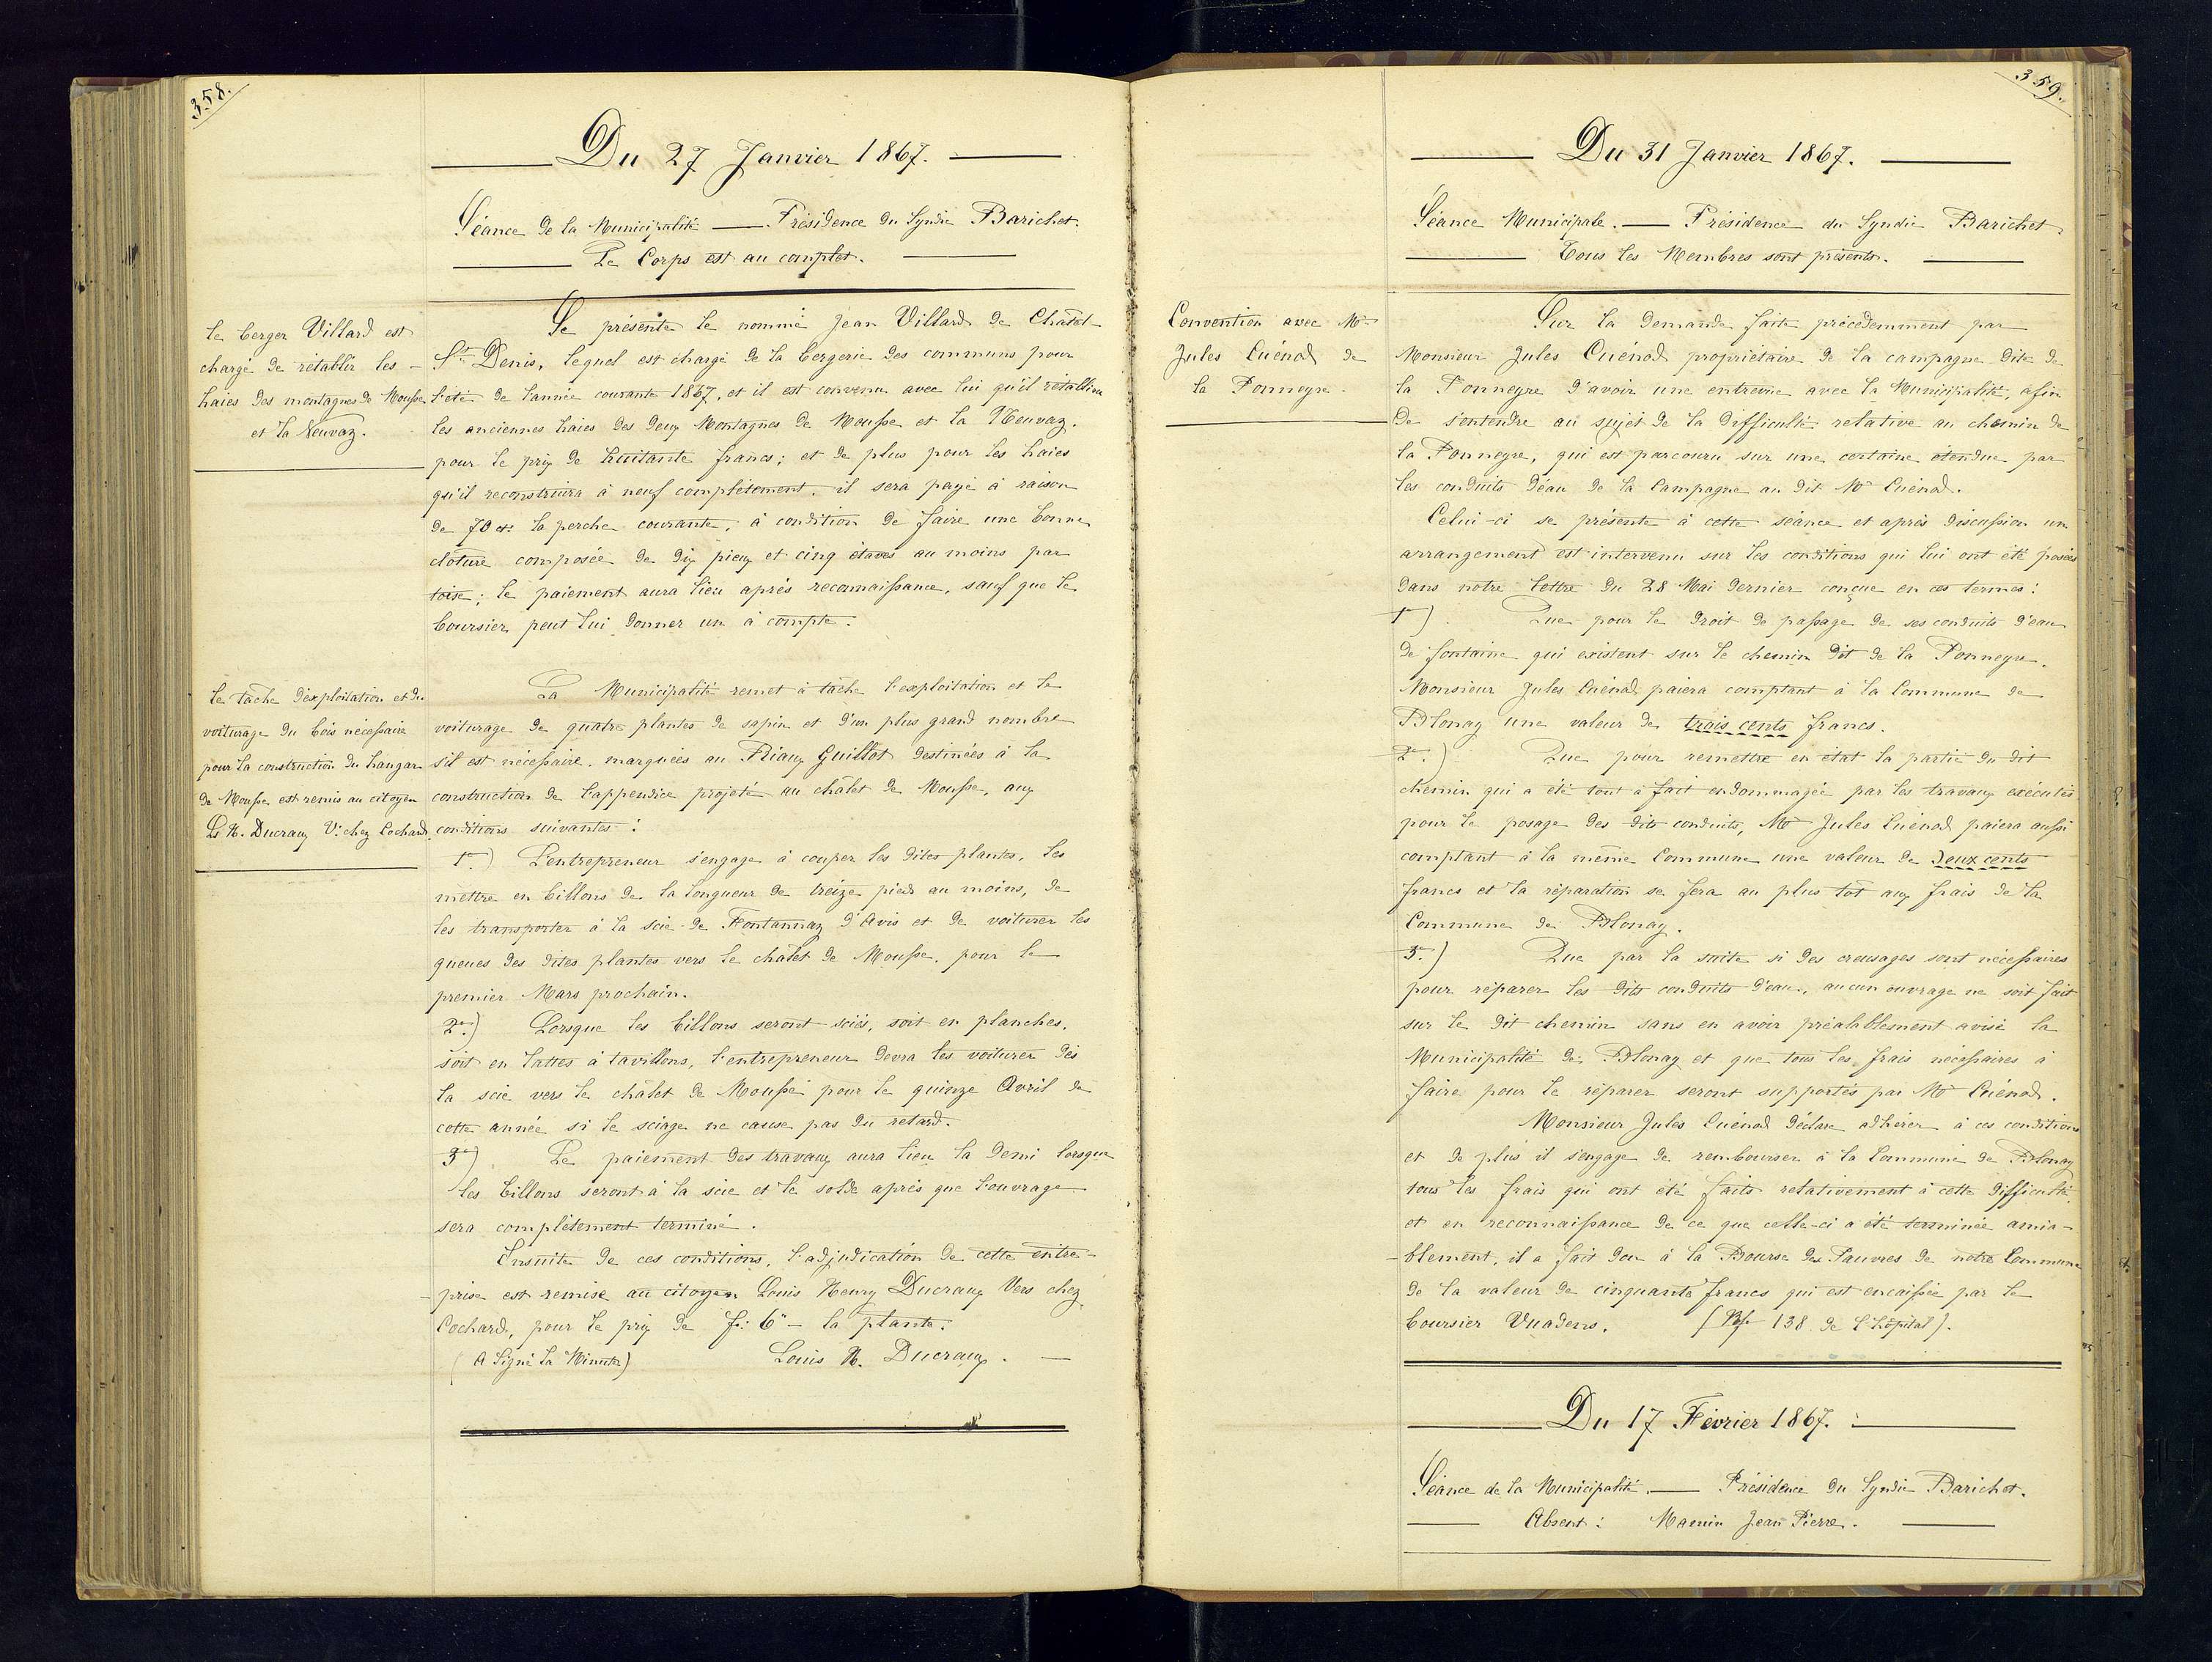 358.
Du 27 Janvier 1867.
Séance de la Municipalité — Présidence du Syndic Barichet.
Le Corps est au complet.
Le berger Villard est
chargé de rétablir les -
haies des montagnes de Mousse
et la Neuvaz.
Se présente le nommé Jean Villard de Châtel-
St Denis, lequel est chargé de la bergerie des communs pour
l'été de l'année courante 1867, et il est convenu avec lui qu'il rétablira
les anciennes haies des deux Montagnes de Mousse et la Neuvaz.
pour le prix de huitante francs; et de plus pour les haies
qu'il reconstruira à neuf complètement, il sera payé à raison
de 70 cts la perche courante, à condition de faire une bonne
clôture composée de dix pieux et cinq étaves au moins par
toise; le paiement aura lieu après reconnaissance, sauf que le
boursier peut lui donner un à compte.
La tâche d'exploitation et du
voiturage du bois nécessaire
pour la construction du hangar
de Mousse est remis au citoyen
Ls H. Ducraux V. chez Cochard.
La Municipalité remet à tâche l'exploitation et le
voiturage de quatre plantes de sapin et d'un plus grand nombre
s'il est nécessaire, marquées au Riaux Guillot destinées à la
construction de l'appendice projeté au châlet de Mousse, aux
conditions suivantes:
1°.) L'entrepreneur s'engage à couper les dites plantes, les
mettre en billons de la longueur de treize pieds au moins, de
les transporter à la scie de Fontannaz d'Avis et de voiturer les
queues des dites plantes vers le châlet de Mousse, pour le
premier Mars prochain.
2°.) Lorsque les billons seront sciés, soit en planches,
soit en lattes à tavillons, l'entrepreneur devra les voiturer dès
la scie vers le châlet de Mousse pour le quinze Avril de
cette année si le sciage ne cause pas du retard.
3°.) Le paiement des travaux aura lieu la demi lorsque
les billons seront à la scie et le solde après que l'ouvrage
sera complètement terminé.
Ensuite de ces conditions, l'adjudication de cette entre-
-prise est remise au citoyen Louis Henry Ducraux Vers chez
Cochard, pour le prix de fr: 6" - la plante.
(A Signé la Minute) Louis H. Ducraux. —
359.
Du 31 Janvier 1867.
Séance Municipale. — Présidence du Syndic Barichet.
Tous les Membres sont présents.
Convention avec Mr
Jules Cuénod de
la Ponneyre.
Sur la demande faite précédemment par
Monsieur Jules Cuénod propriétaire de la campagne dite de
la Ponneyre d'avoir une entrevue avec la Municipalité, afin
de s'entendre au sujet de la difficulté relative au chemin de
la Ponneyre, qui est parcouru sur une certaine étendue par
les conduits d'eau de la Campagne au dit Mr Cuénod.
Celui-ci se présente à cette séance et après discussion un
arrangement est intervenu sur les conditions qui lui ont été posées
dans notre lettre du 28 Mai dernier conçue en ces termes:
1°). Que pour le droit de passage de ses conduits d'eau
de fontaine qui existent sur le chemin dit de la Ponneyre,
Monsieur Jules Cuénod paiera comptant à la Commune de
Blonay une valeur de trois cents francs.
2°.) Que pour remettre en état la partie du dit
chemin qui a été tout à fait endommagée par les travaux exécutés
pour le posage des dits conduits, Mr Jules Cuénod paiera aussi
comptant à la même Commune une valeur de deux cents
francs et la réparation se fera au plus tôt aux frais de la
Commune de Blonay.
3°.) Que par la suite si des creusages sont nécessaires
pour réparer les dits conduits d'eau, aucun ouvrage ne soit fait
sur le dit chemin sans en avoir préalablement avisé la
Municipalité de Blonay et que tous les frais nécessaires à
faire pour le réparer seront supportés par Mr Cuénod.
Monsieur Jules Cuénod déclare adhérer à ces conditions
et de plus il s'engage de rembourser à la Commune de Blonay
tous les frais qui ont été faits relativement à cette difficulté,
et en reconnaissance de ce que celle-ci a été terminée amia-
-blement, il a fait don à la Bourse des Pauvres de notre Commune
de la valeur de cinquante francs qui est encaissée par le
boursier Vuadens. 138 de l'hôpital).
Du 17 Février 1867.
Séance de la Municipalité. — Présidence du Syndic Barichet.
Absent: Mamin Jean Pierre.